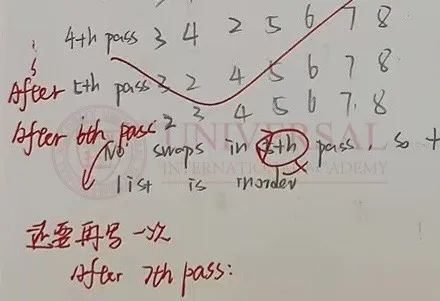 4th pass 3 4 2 5 6 7 8
After 5th pass 3 2 4 5 6 7 8
After 6th pass 2 3 4 5 6 7 8
No swaps in 7th pass, so t
UNIVERSAL
INTERNATIONAL ACADEMY
list is inorder
还要再写一次
After 7th pass: